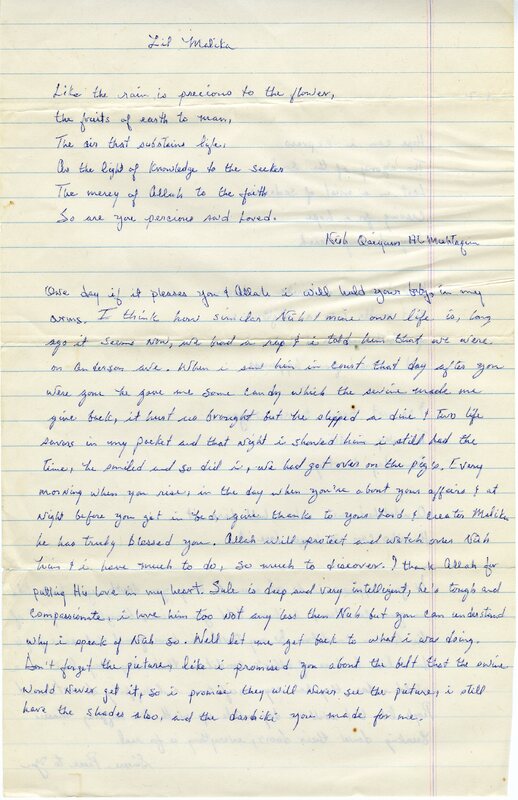 Lil Malika
Like the rain is precious to the flower,
the fruits of earth to man,
The air that substains life,
As the light of knowledge to the seeker
The mercy of Allah to the faith
So are you percious and Loved.
Nuh Qaiyum Al-Muhtaqun
One day if it pleases you & Allah i will hold your baby in my
arms. I think how similar Nuh & mine own life is, long
ago it seems now, we had a rap & i told him that we were
on Anderson ave. When i saw him in court that day after you
were gone he gave me some candy which the swine made me
give back, it hurt us brought but he slipped a dime & two life
savers in my pocket and that night i showed him i still had the
time, he smiled and so did i, we had got over on the pigs. Every
morning when you rise, in the day when you're about your affairs & at
night before you get in bed, give thanks to your Lord & Creator Malika
he has truly blessed you. Allah will protect and watch over Nuh
him & i have much to do, so much to discover. I thank Allah for
putting His love in my heart. Sule is deep and very intelligent, he's tough and
compassionate, i love him too not any less then Nuh but you can understand
why i speak of Nuh so. Well let me get back to what i was doing.
Don't forget the pictures, like i promised you about the belt that the swine
would never get it, so i promise they will never see the picture, i still
have the shades also, and the dashiki you made for me.